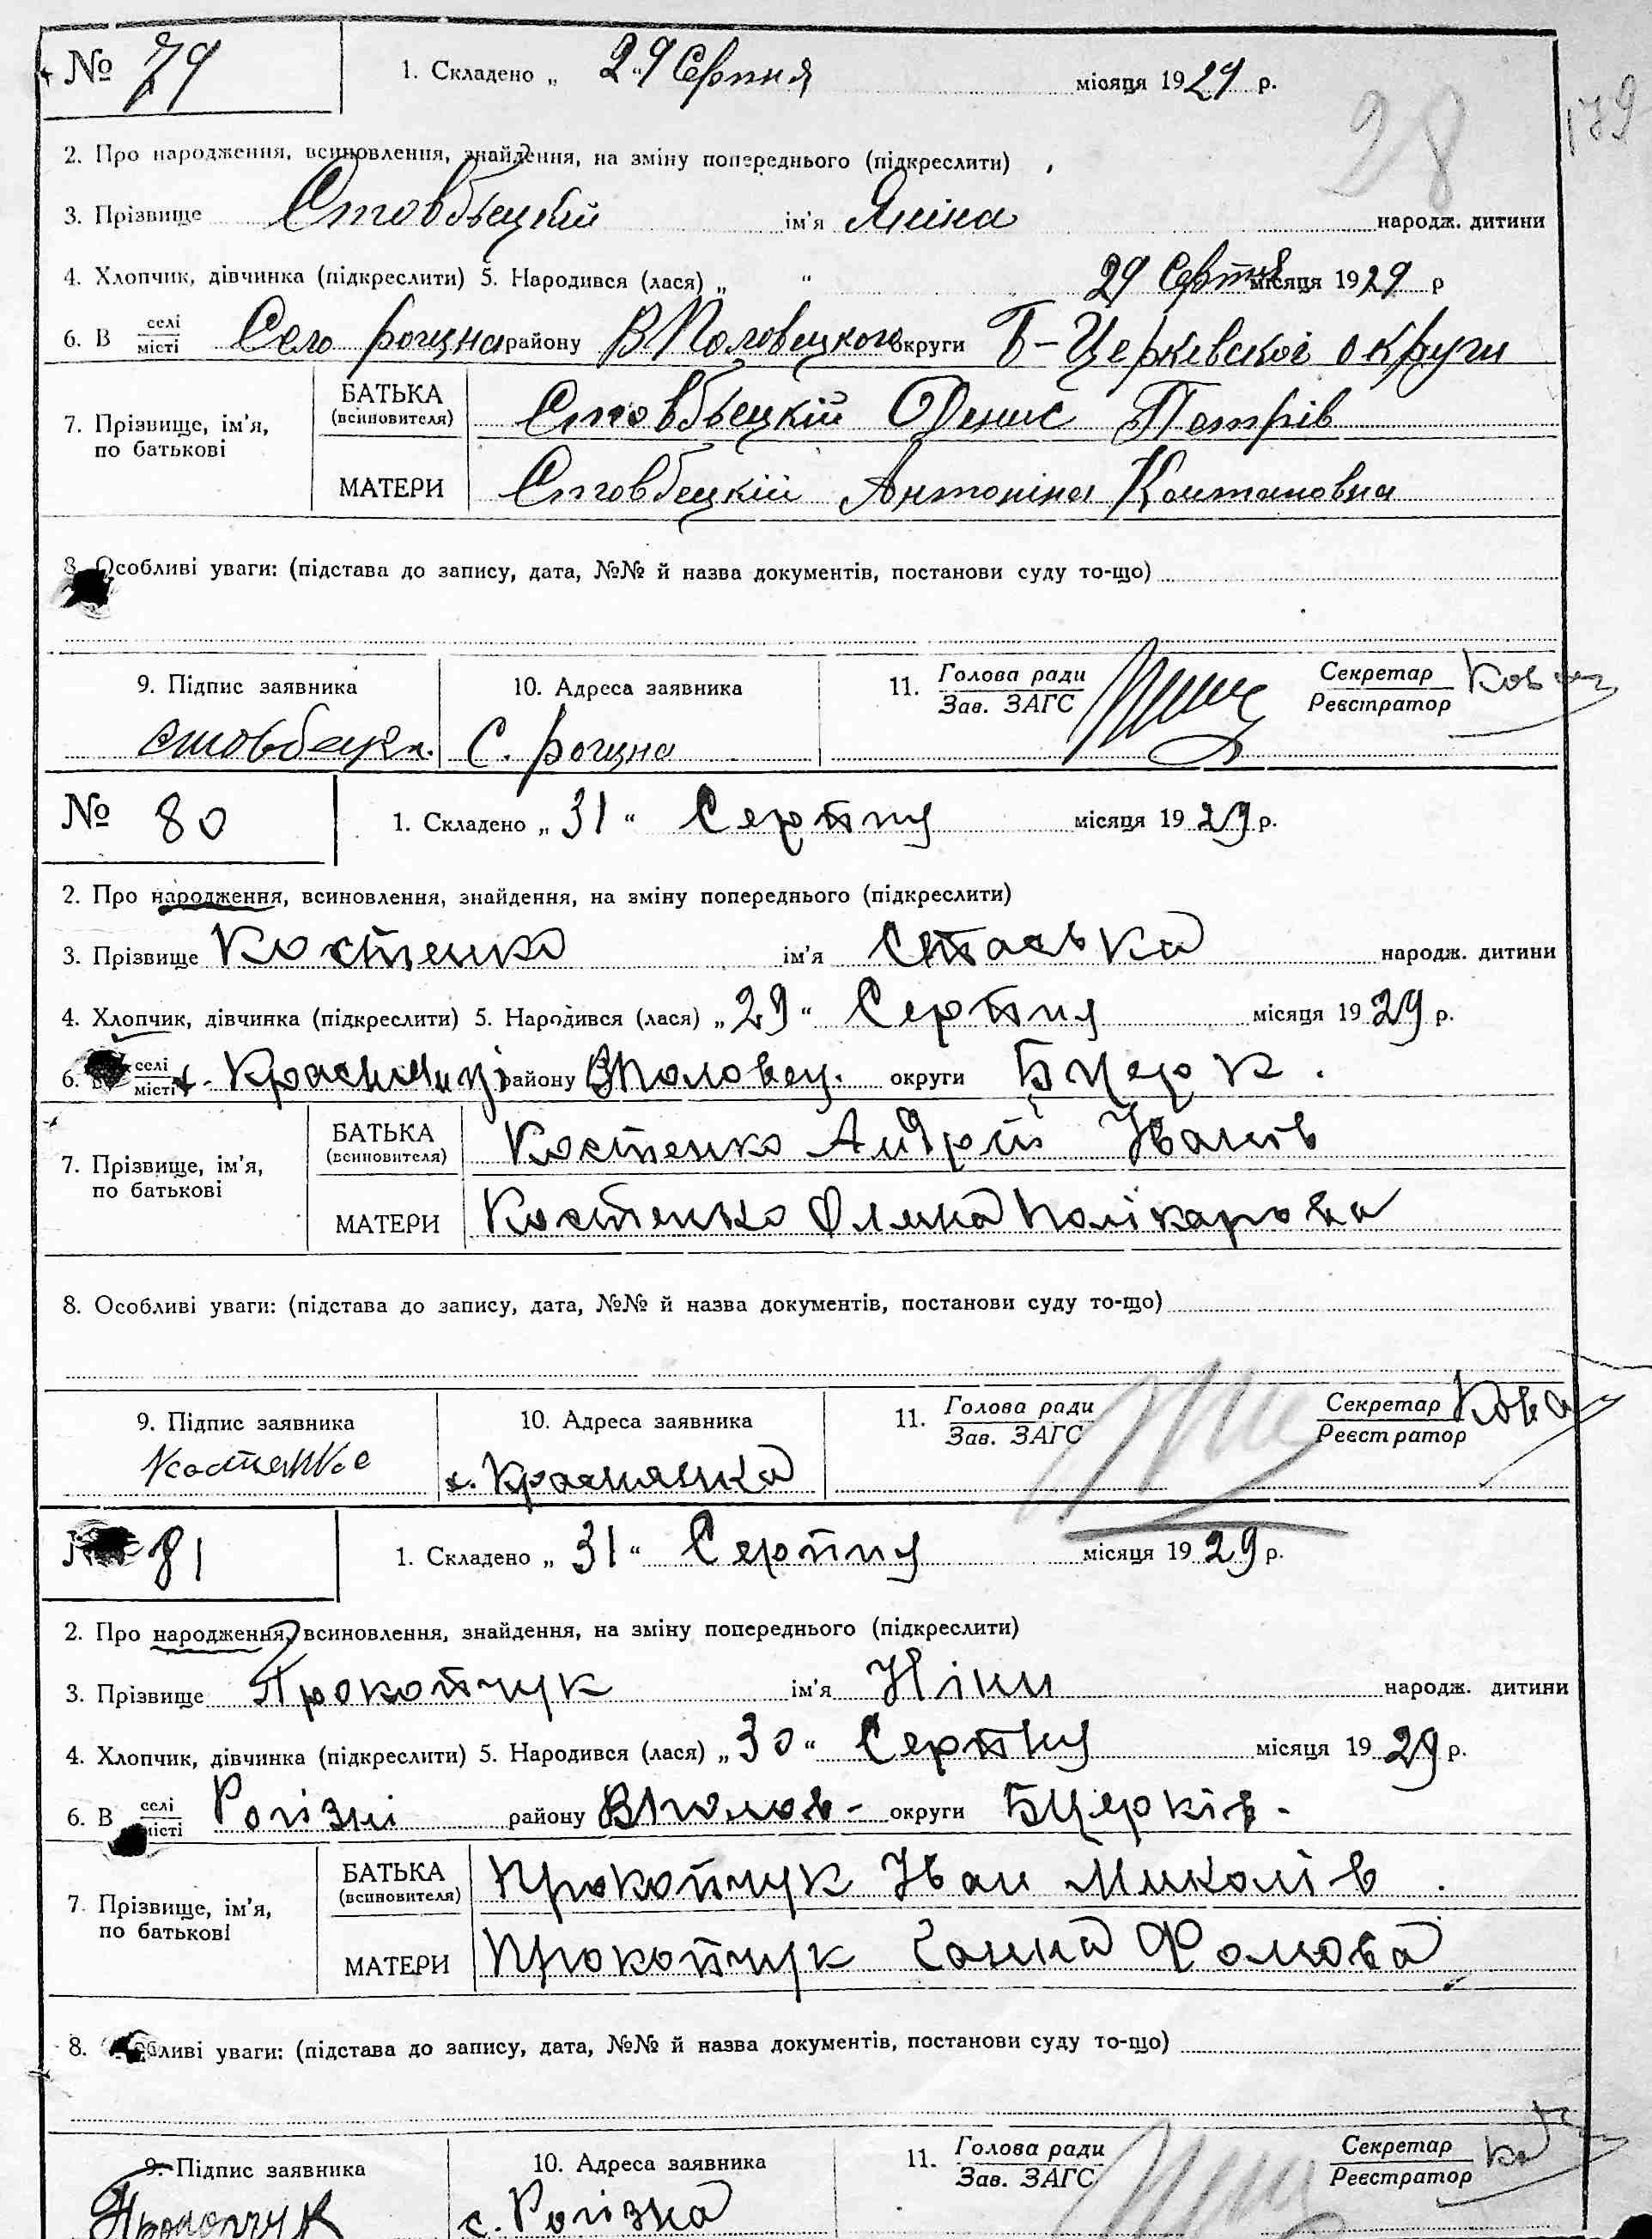 № 79
1. Складено „ 29 " Серпня місяця 1929 р.
28
179
2. Про народження, всиновлення, знайдення, на зміну попереднього (підкреслити)
3. Прізвище Стовбьецкій ім'я Яніна народж. дитини
4. Хлопчик, дівчинка (підкреслити) 5. Народився (лася) „ " 29 Серпня місяця 1929 р
6. В селі місті Село рогизна району ВПоловецкого округи Б-Церкевскоі округи
7. Прізвище, ім'я, по батькові
БАТЬКА (всиновителя) Стовбьецкій Денис Петрів
МАТЕРИ Стовбецкій Антоніна
8. Особливі уваги: (підстава до запису, дата, №№ й назва документів, постанови суду то-що)
9. Підпис заявника
10. Адреса заявника
11. Голова ради Зав. ЗАГС
Секретар Реєстратор
стовбецка. С. рогизна
№ 80
1. Складено „ 31 " Серпня місяця 1929 р.
2. Про народження, всиновлення, знайдення, на зміну попереднього (підкреслити)
3. Прізвище Костенко ім'я Стаська народж. дитини
4. Хлопчик, дівчинка (підкреслити) 5. Народився (лася) „ 29 " Серпня місяця 1929 р.
6. селі місті х. Краснянці району ВПоловец. округи БЦерк.
7. Прізвище, ім'я, по батькові
БАТЬКА (всиновителя) Костенко Андрій Іванів
МАТЕРИ Костенко Оляна Полікарпова
8. Особливі уваги: (підстава до запису, дата, №№ й назва документів, постанови суду то-що)
9. Підпис заявника
10. Адреса заявника
11. Голова ради Зав. ЗАГС
Секретар Реєстратор
Костенко х. Краснянка
№ 81
1. Складено „ 31 " Серпня місяця 1929 р.
2. Про народження, всиновлення, знайдення, на зміну попереднього (підкреслити)
3. Прізвище Прокопчук ім'я Ніни народж. дитини
4. Хлопчик, дівчинка (підкреслити) 5. Народився (лася) „ 30 " Серпня місяця 1929 р.
6. В селі місті Рогізні району ВПолов- округи БЦерків-
7. Прізвище, ім'я, по батькові
БАТЬКА (всиновителя) Прокопчук Іван Миколів
МАТЕРИ Прокопчук Ганна Фомова
8. Особливі уваги: (підстава до запису, дата, №№ й назва документів, постанови суду то-що)
9. Підпис заявника
10. Адреса заявника
11. Голова ради Зав. ЗАГС
Секретар Реєстратор
Прокопчук с. Рогізна